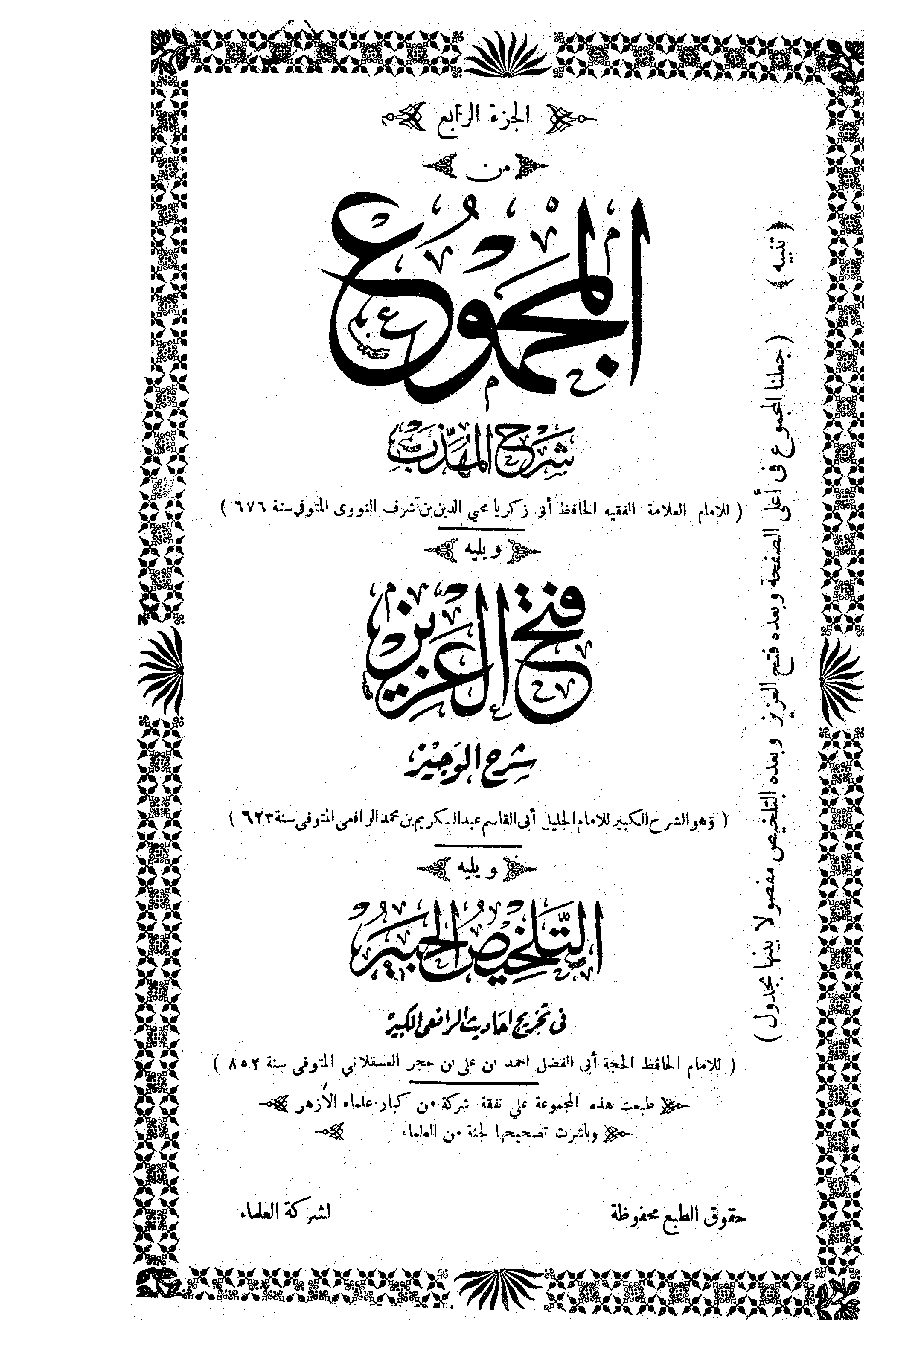 الجزء الرابع
من
المجموع
شرح المهذب
( للامام العلامة الفقيه الحافظ أبى زكريا محيي الدين بن شرف النووى المتوفى سنة ٦٧٦ )
ويليه
فتح العزيز
شرح الوجيز
( وهو الشرح الكبير للامام الجليل أبى القاسم عبد الكريم بن محمد الرافعى المتوفى سنة ٦٢٣ )
ويليه
التلخيص الحبير
فى تخريج احاديث الرافعى الكبير
( للامام الحافظ الحجة أبى الفضل احمد بن على بن حجر العسقلانى المتوفى سنة ٨٥٢ )
طبعت هذه المجموعة على نفقة شركة من كبار علماء الأزهر
وباشرت تصحيحها لجنة من العلماء
حقوق الطبع محفوظة لشركة العلماء
( تنبيه )
( جعلنا المجموع فى أعلى الصفحة وبعده فتح العزيز وبعده التلخيص مفصولا بينها بجدول )